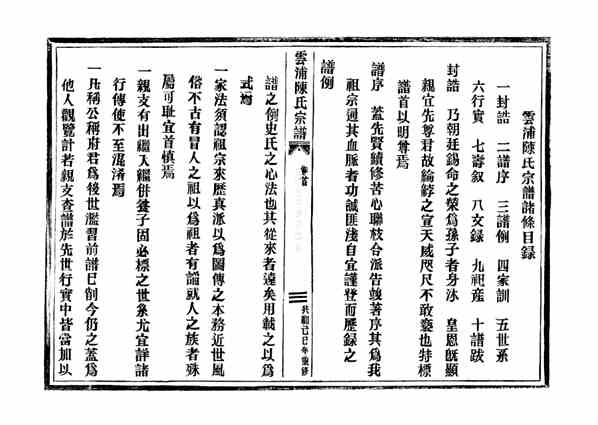 雲浦陳氏宗譜諸條目錄
一封誥 二譜序 三譜例 四家訓 五世系
六行實 七壽叙 八文錄 九祀產 十譜跋
封誥 乃朝廷錫命之榮為孫子者身沐 皇恩既顯
親宜先尊君故綸綍之宣天威咫尺不敢褻也特標
譜首以明尊焉
譜序 蓋先賢績修苦心聯枝合派告竣著序其為我
祖宗通其血脈者功誠匪淺自宜謹登而歷錄之
譜例
雲浦陳氏宗譜
卷首
共和己巳年重修
譜之例史氏之心法也其從來者遠矣用載之以為
式焉
一家法須認祖宗來歷真派以為圖傳之本務近世風
俗不古有冒人之祖以為祖者有謟就人之族者殊
屬可耻宜首慎焉
一親支有出繼入繼併養子固必標之世系尤宜詳諸
行傳使不至混淆焉
一凡稱公稱府君為後世濫習前譜已削今仍之蓋為
他人觀覽計若親支查譜於先世行實中皆當加以